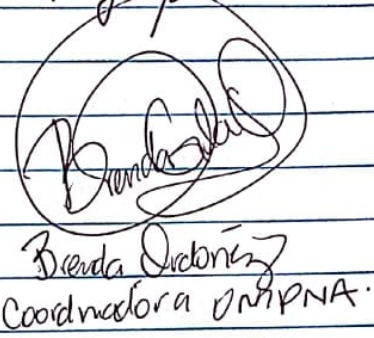 Brenda Ordoñez
Coordinadora OMPNA.